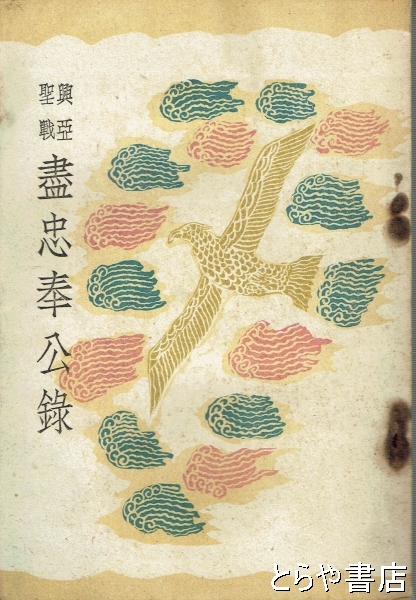 興亞
聖戰
盡忠奉公錄
とらや書店